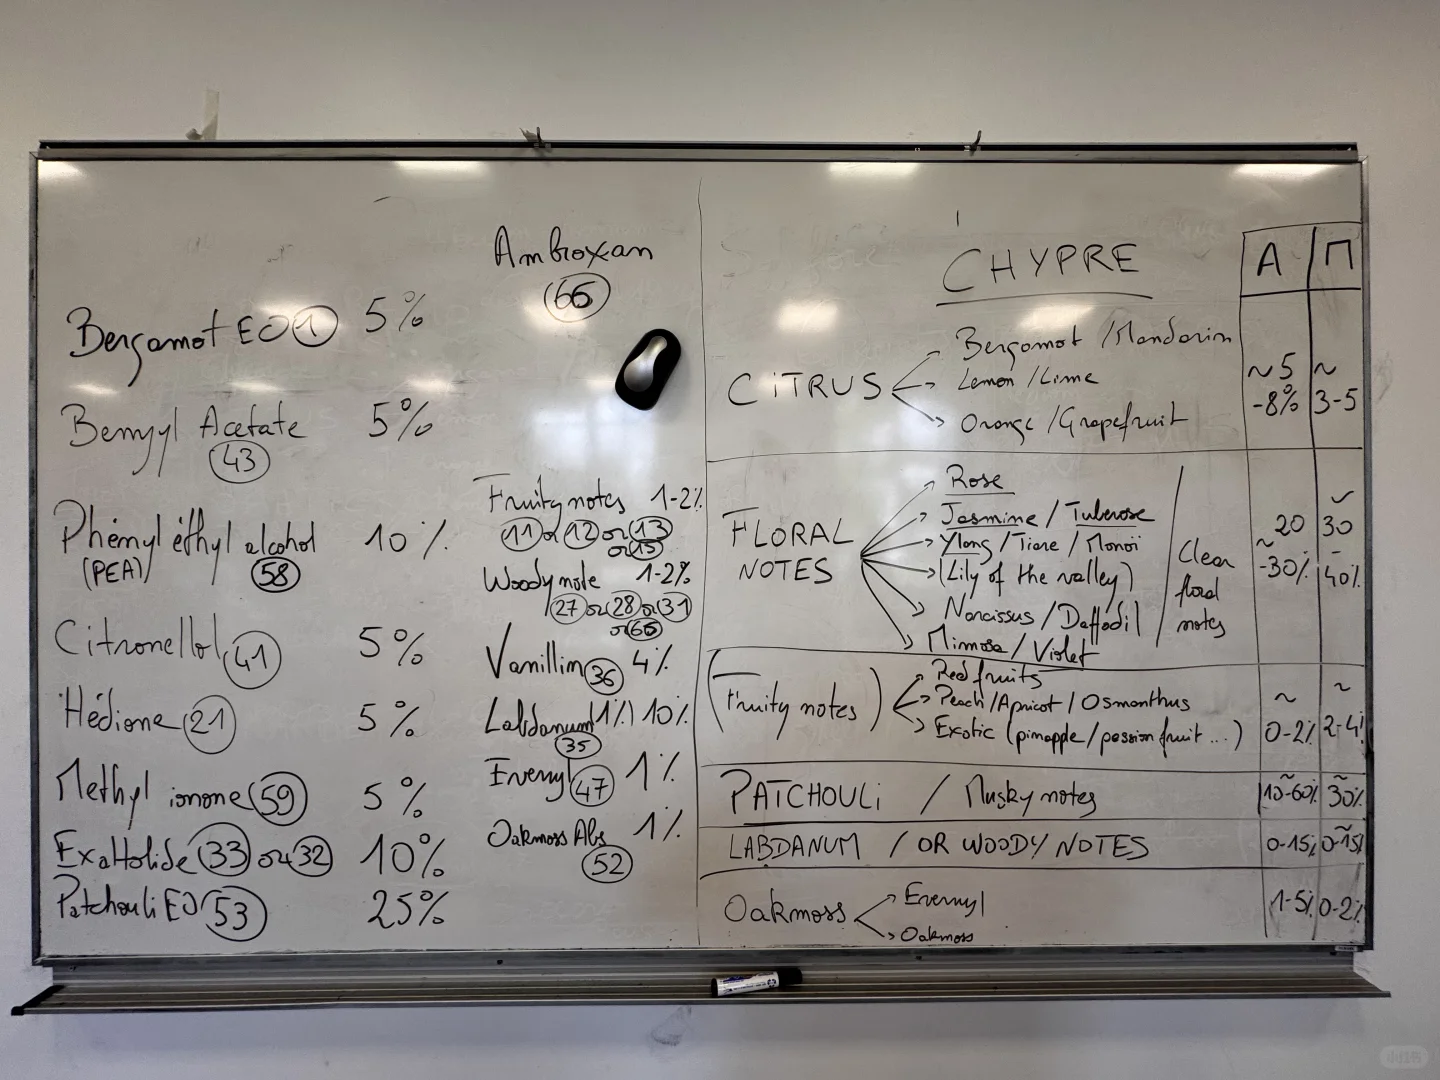 Ambroxan
66
Bergamot EO 1 5%
Benzyl Acetate 5%
43
Phényl éthyl alcohol 10%
(PEA) 58
Citronellol 41 5%
Hédione 21 5%
Methyl ionone 59 5%
Exaltolide 33 or 32 10%
Patchouli EO 53 25%
Fruity notes 1-2%
11 or 12 or 13
or 15
Woody note 1-2%
27 or 28 or 31
or 66
Vanillin 36 4%
Labdanum (1%) 10%
35
Evernyl 47 1%
Oakmoss Abs 1%
52
CHYPRE A Π
CITRUS
Bergamot / Mandarin
Lemon / Lime
Orange / Grapefruit
~5
-8%
~
3-5
FLORAL
NOTES
Rose
Jasmine / Tuberose
Ylang / Tiare / Monoï
(Lily of the valley)
Narcissus / Daffodil
Mimosa / Violet
Clear
floral
notes
20
~
-30%
30
-
40%
(Fruity notes)
Red fruits
Peach / Apricot / Osmanthus
Exotic (pineapple / passion fruit ...)
~
0-2%
~
2-4%
PATCHOULI / Musky notes ~ 10-60% ~ 30%
LABDANUM / OR WOODY NOTES 0-15% 0-15%
Oakmoss
Evernyl
Oakmoss
1-5% 0-2%